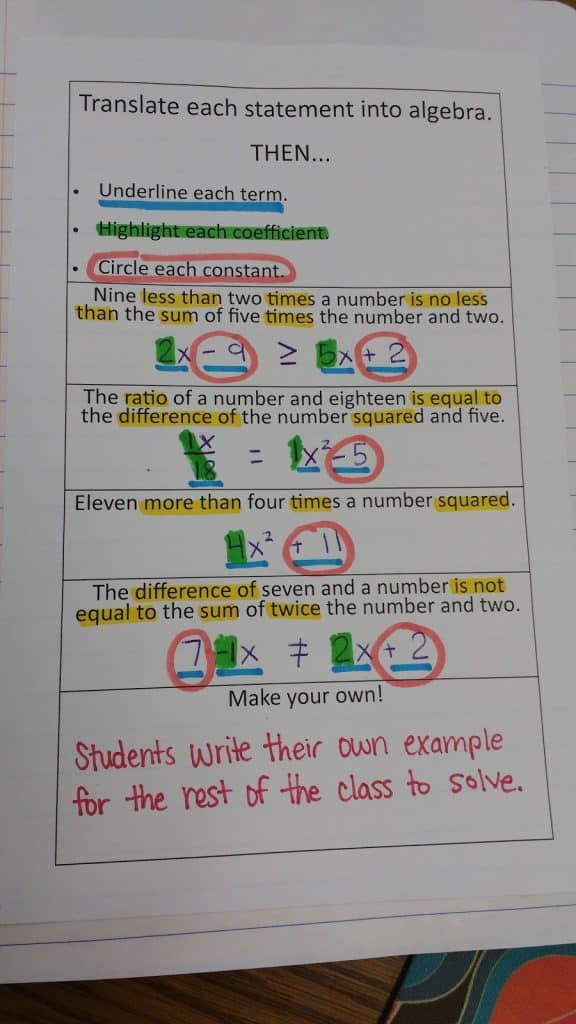 Translate each statement into algebra.
THEN...
• Underline each term.
• Highlight each coefficient.
• Circle each constant.
Nine less than two times a number is no less
than the sum of five times the number and two.
2x - 9 ≥ 5x + 2
The ratio of a number and eighteen is equal to
the difference of the number squared and five.
1x/18 = 1x² - 5
Eleven more than four times a number squared.
4x² + 11
The difference of seven and a number is not
equal to the sum of twice the number and two.
7 -1x ≠ 2x + 2
Make your own!
Students write their own example
for the rest of the class to solve.